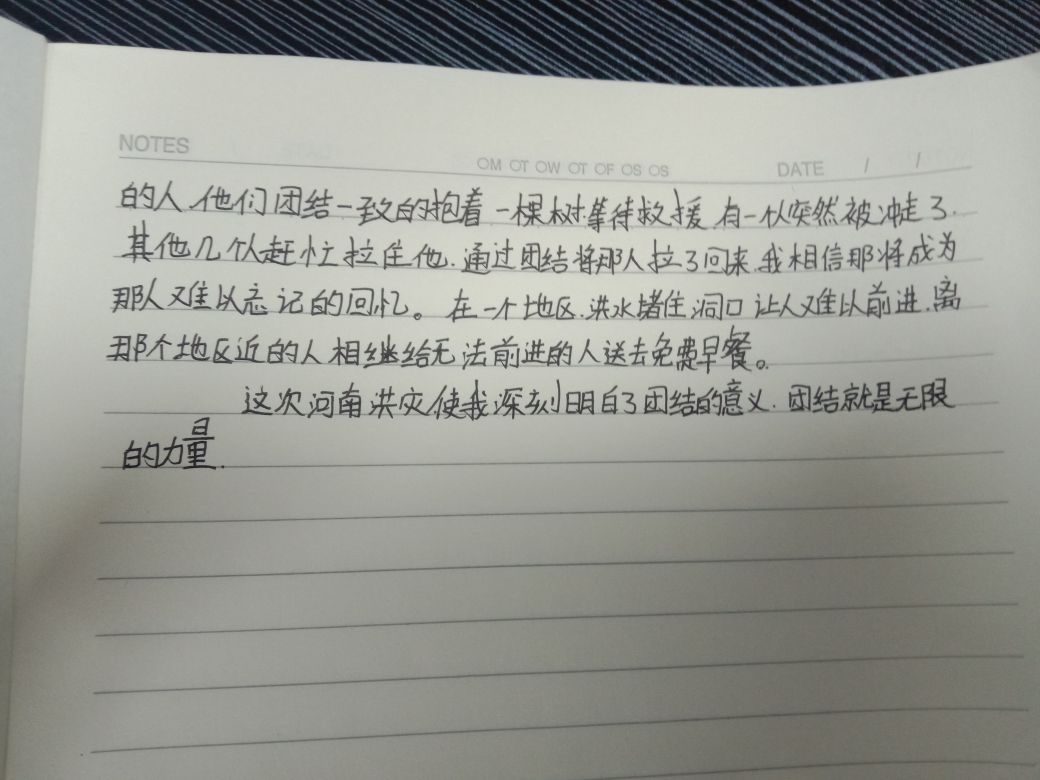 NOTES
OM OT OW OT OF OS OS
DATE / /
的人,他们团结一致的抱着一棵树等待救援,有一个人突然被冲走了.
其他几个人赶忙拉住他.通过团结将那人拉了回来.我相信那将成为
那人难以忘记的回忆。在一个地区.洪水堵住洞口让人难以前进.离
那个地区近的人相继给无法前进的人送去免费早餐。
这次河南洪灾使我深刻明白了团结的意义.团结就是无限
的力量.